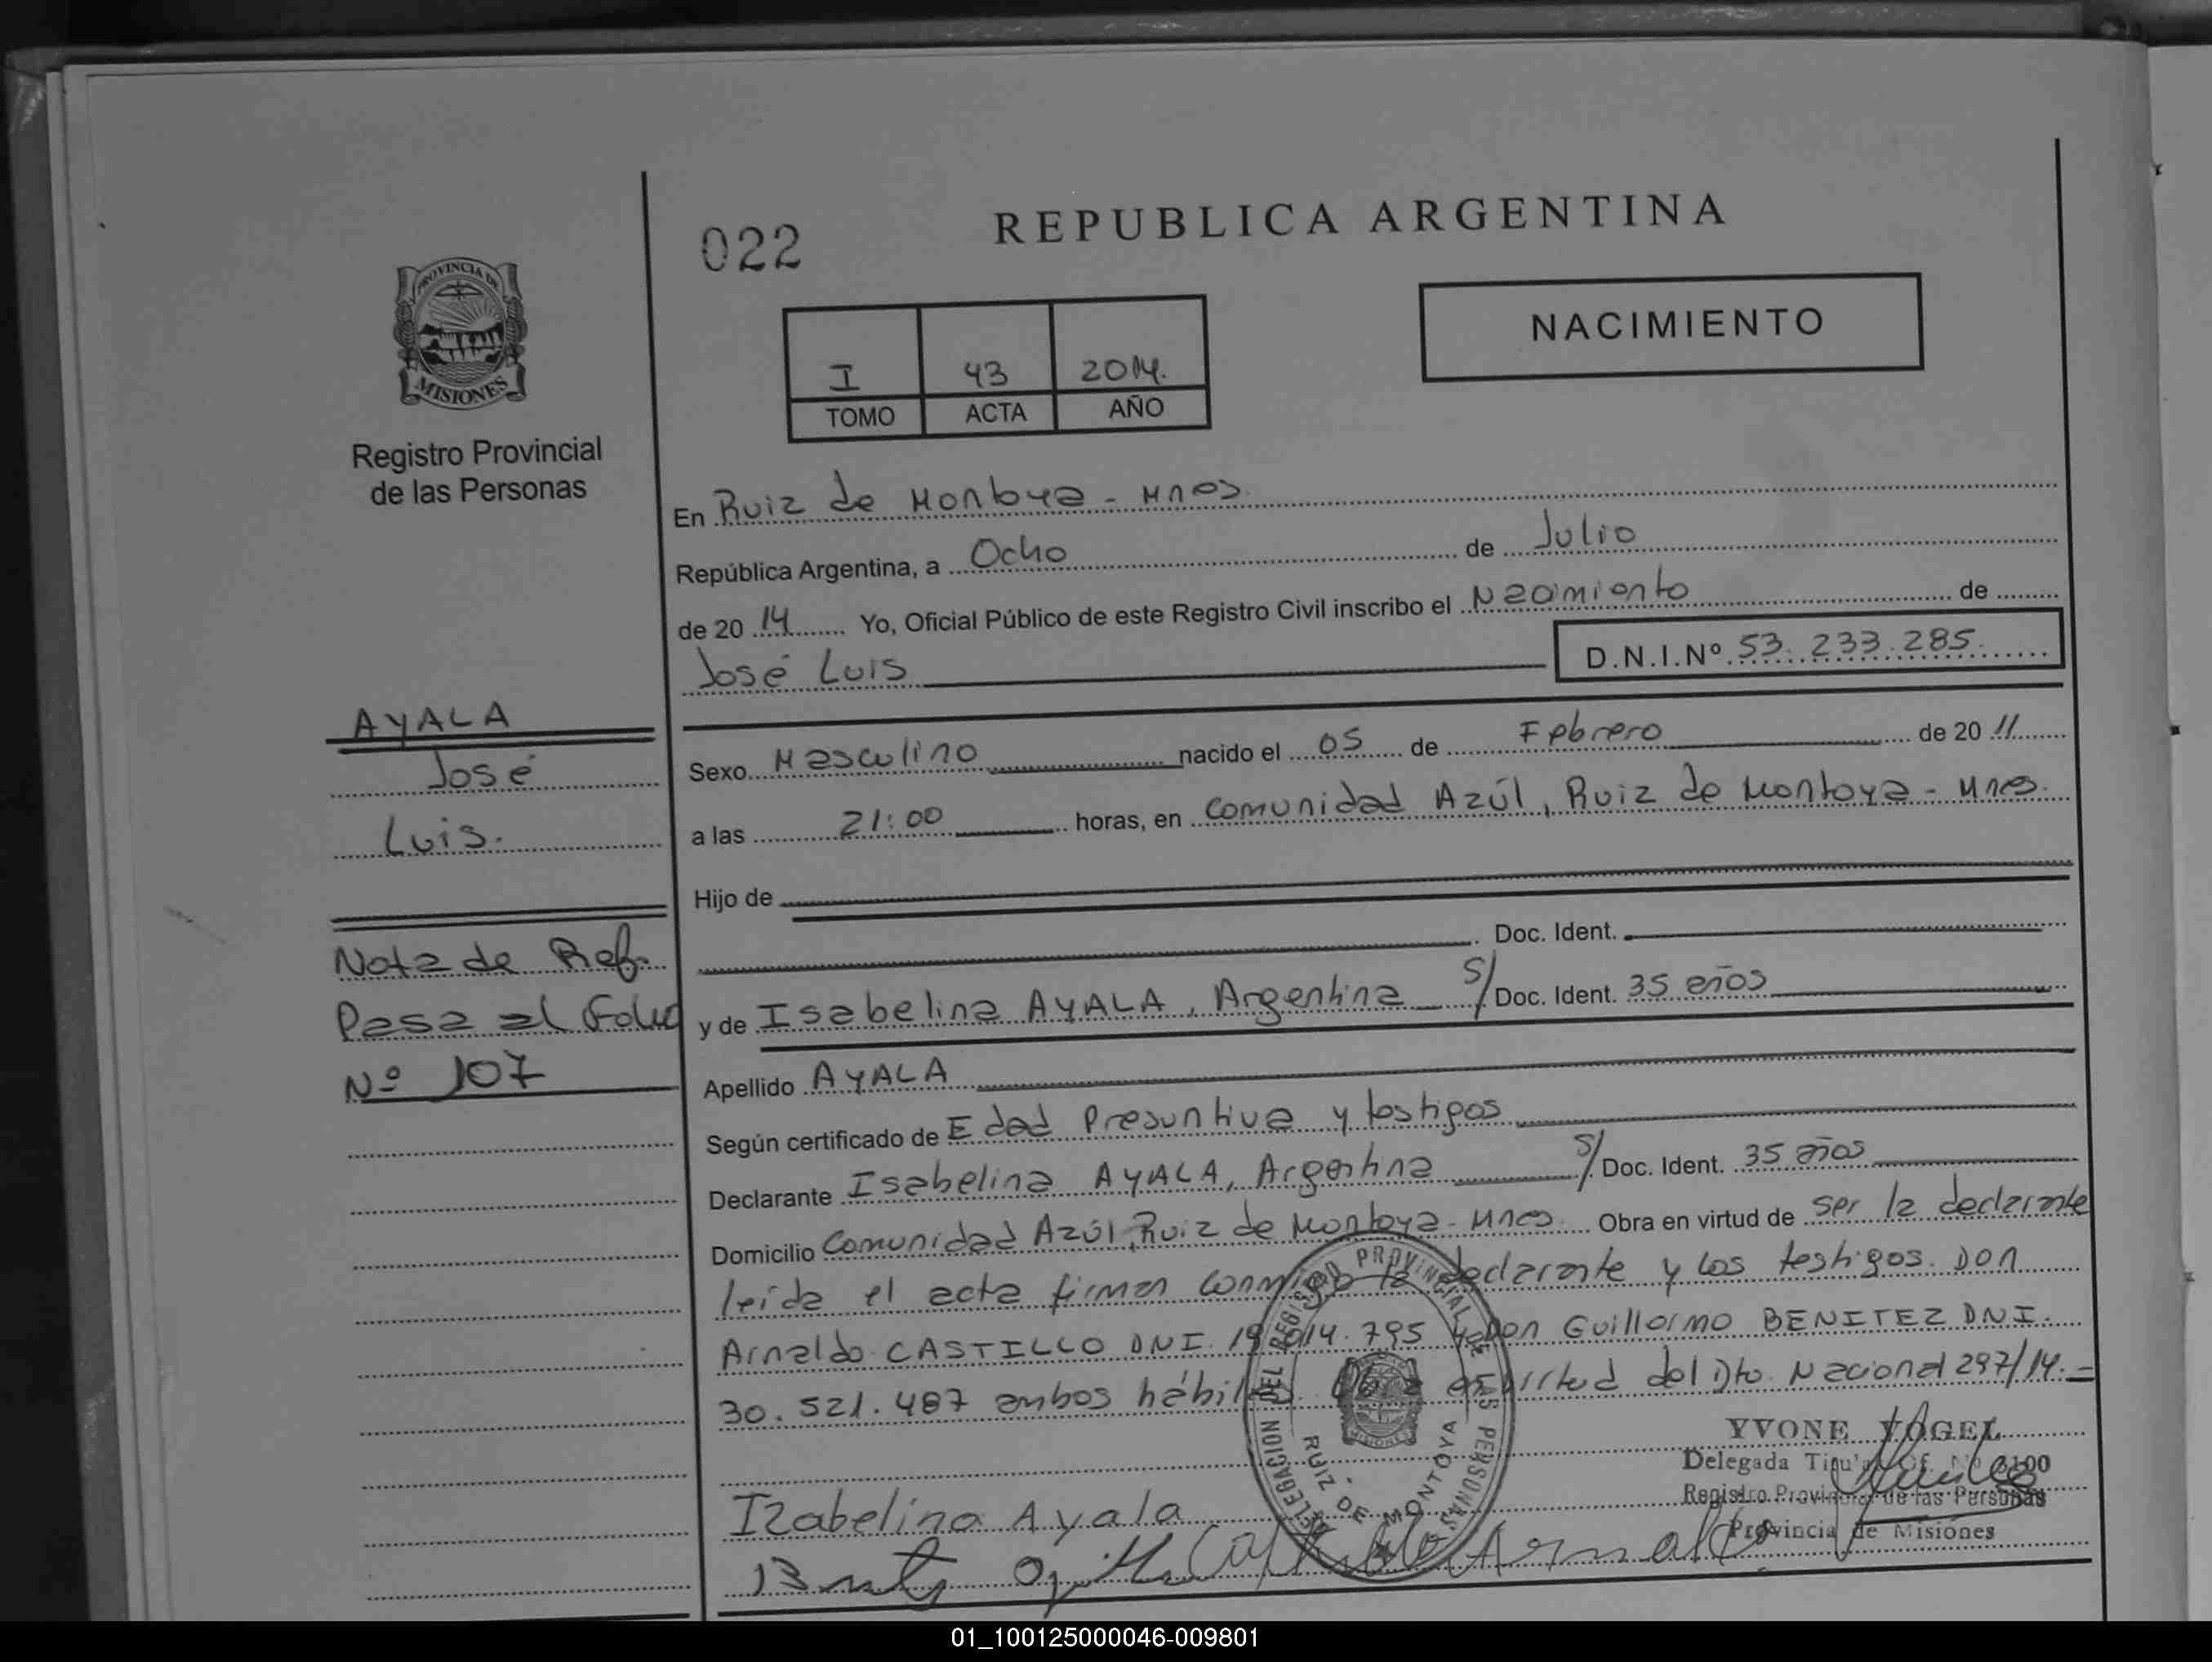 022
REPUBLICA ARGENTINA
PROVINCIA DE
MISIONES
Registro Provincial
de las Personas
NACIMIENTO
I 43 2014.
TOMO ACTA AÑO
En Ruiz de Montoya - Mnes.
República Argentina, a Ocho de Julio
de 20 14 Yo, Oficial Público de este Registro Civil inscribo el Nacimiento de
José Luis
D.N.I.Nº 53.233.285.
AYALA
José
Luis.
Sexo Masculino nacido el 05 de Febrero de 20 11
a las 21:00 horas, en Comunidad Azúl, Ruiz de Montoya - Mnes.
Hijo de
Doc. Ident.
Nota de Ref.
Pasa al Folio
Nº 107
y de Isabelina AYALA, Argentina S/ Doc. Ident. 35 años
Apellido AYALA
Según certificado de Edad Presuntiva y testigos
Declarante Isabelina AYALA, Argentina S/ Doc. Ident. 35 años
Domicilio Comunidad Azúl, Ruiz de Montoya - Mnes. Obra en virtud de ser la declarante
leída el acta firman conmigo la declarante y los testigos. Don
Arnaldo CASTILLO DNI. 19.014.795 y Don Guillermo BENITEZ DNI.
30.521.487 ambos hábiles. Obra en virtud del Dto Nacional 297/14.=
DELEGACION DEL REGISTRO PROVINCIAL DE LAS PERSONAS
RUIZ DE MONTOYA
MISIONES
YVONE VOGEL
Delegada Titular Of. Nº 3100
Registro Provincial de las Personas
Provincia de Misiones
Izabelino Ayala
Castillo Arnaldo
01_100125000046-009801